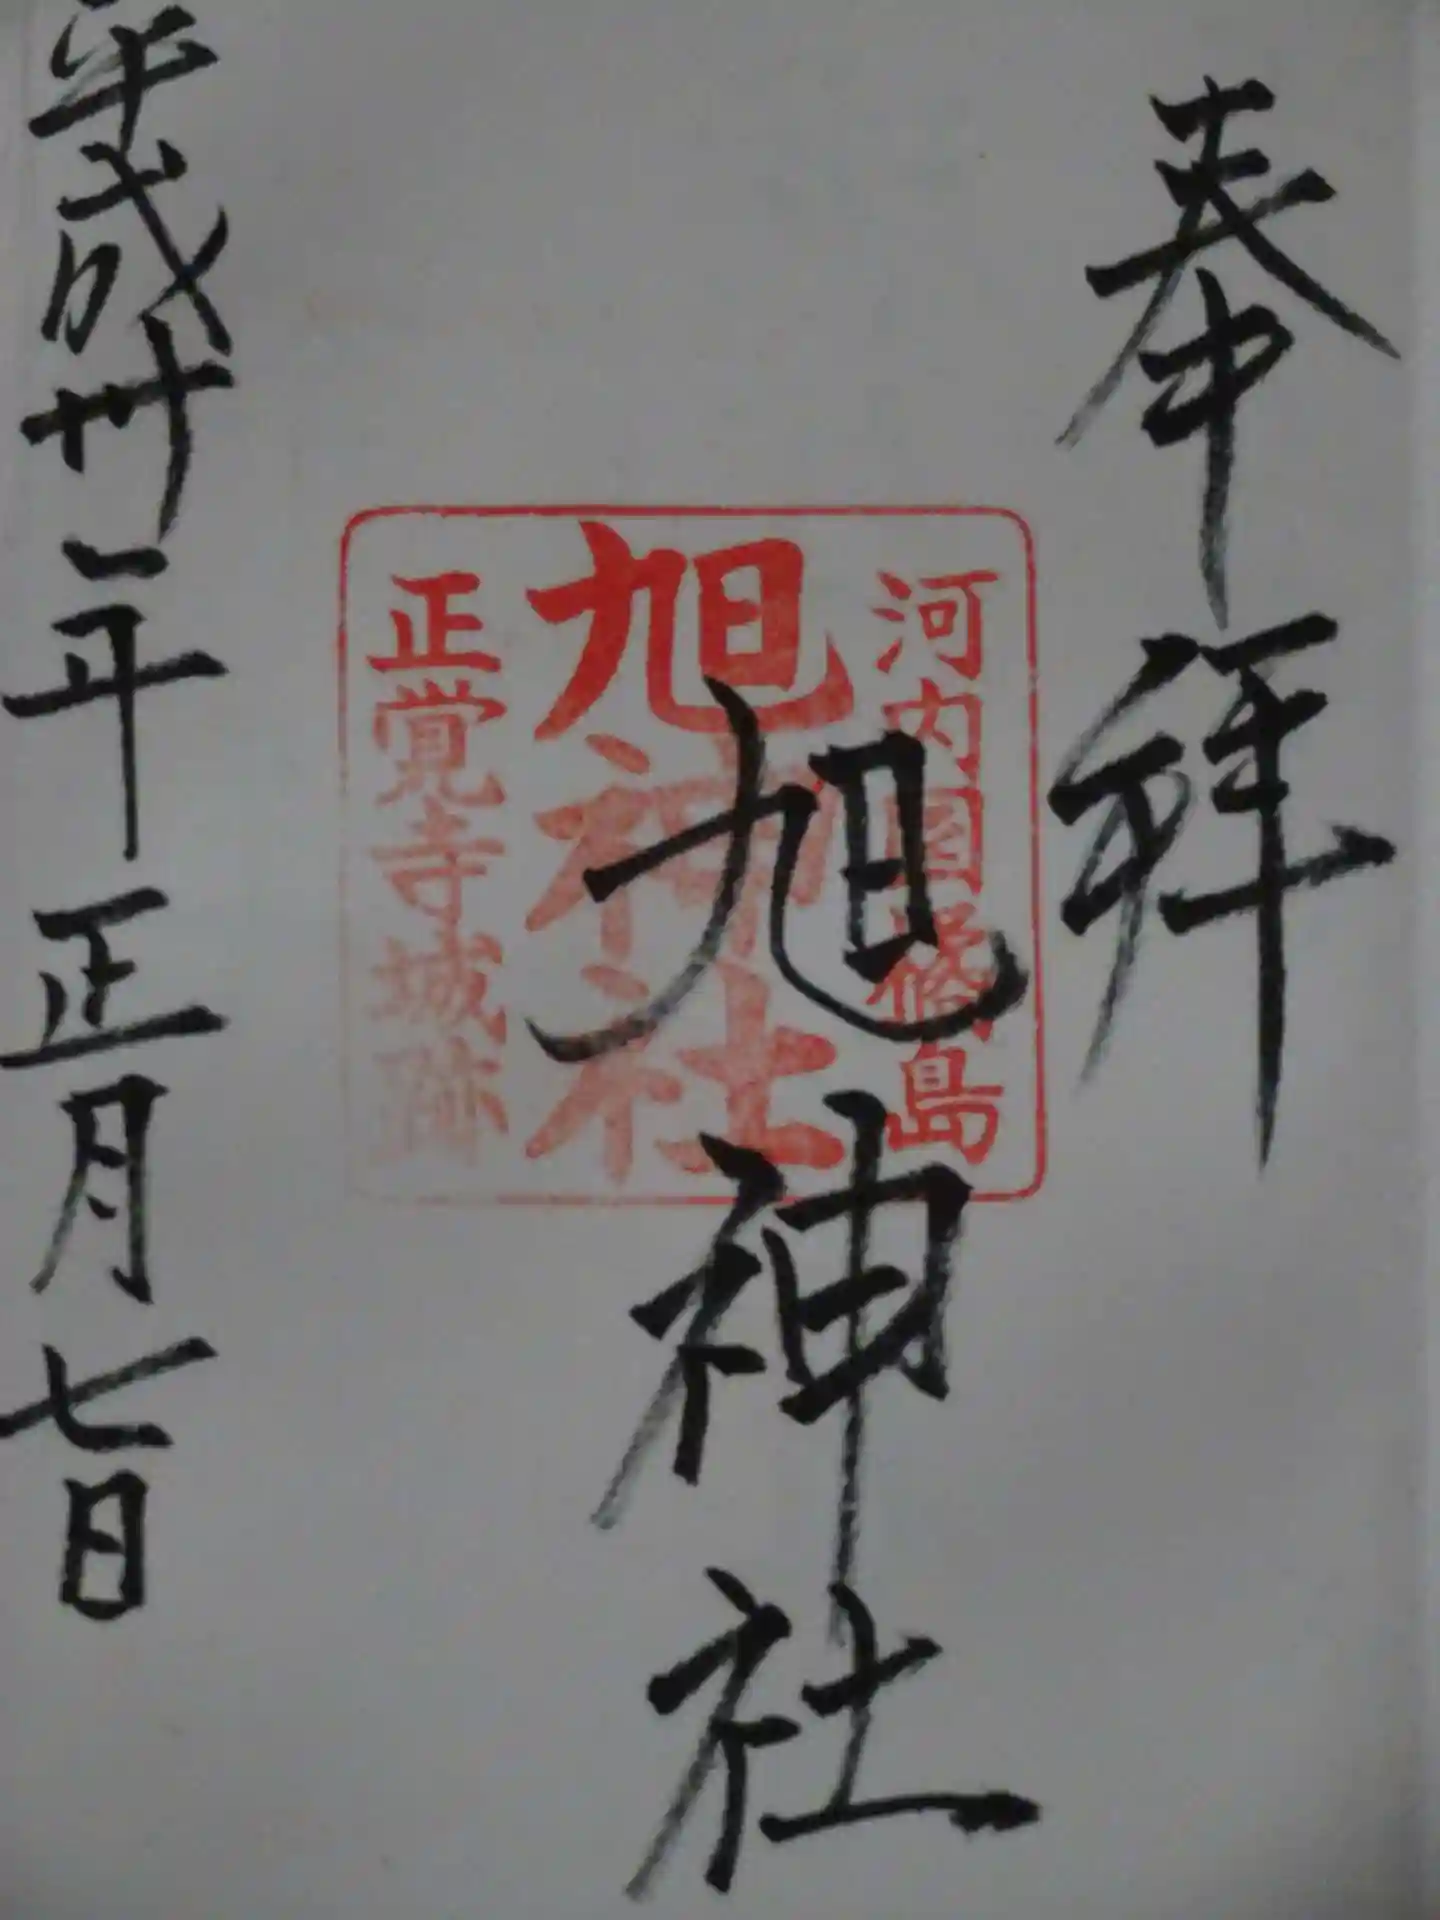 奉拝
河内国橘島
旭神社
正覚寺城跡
旭神社
平成卅一年正月七日